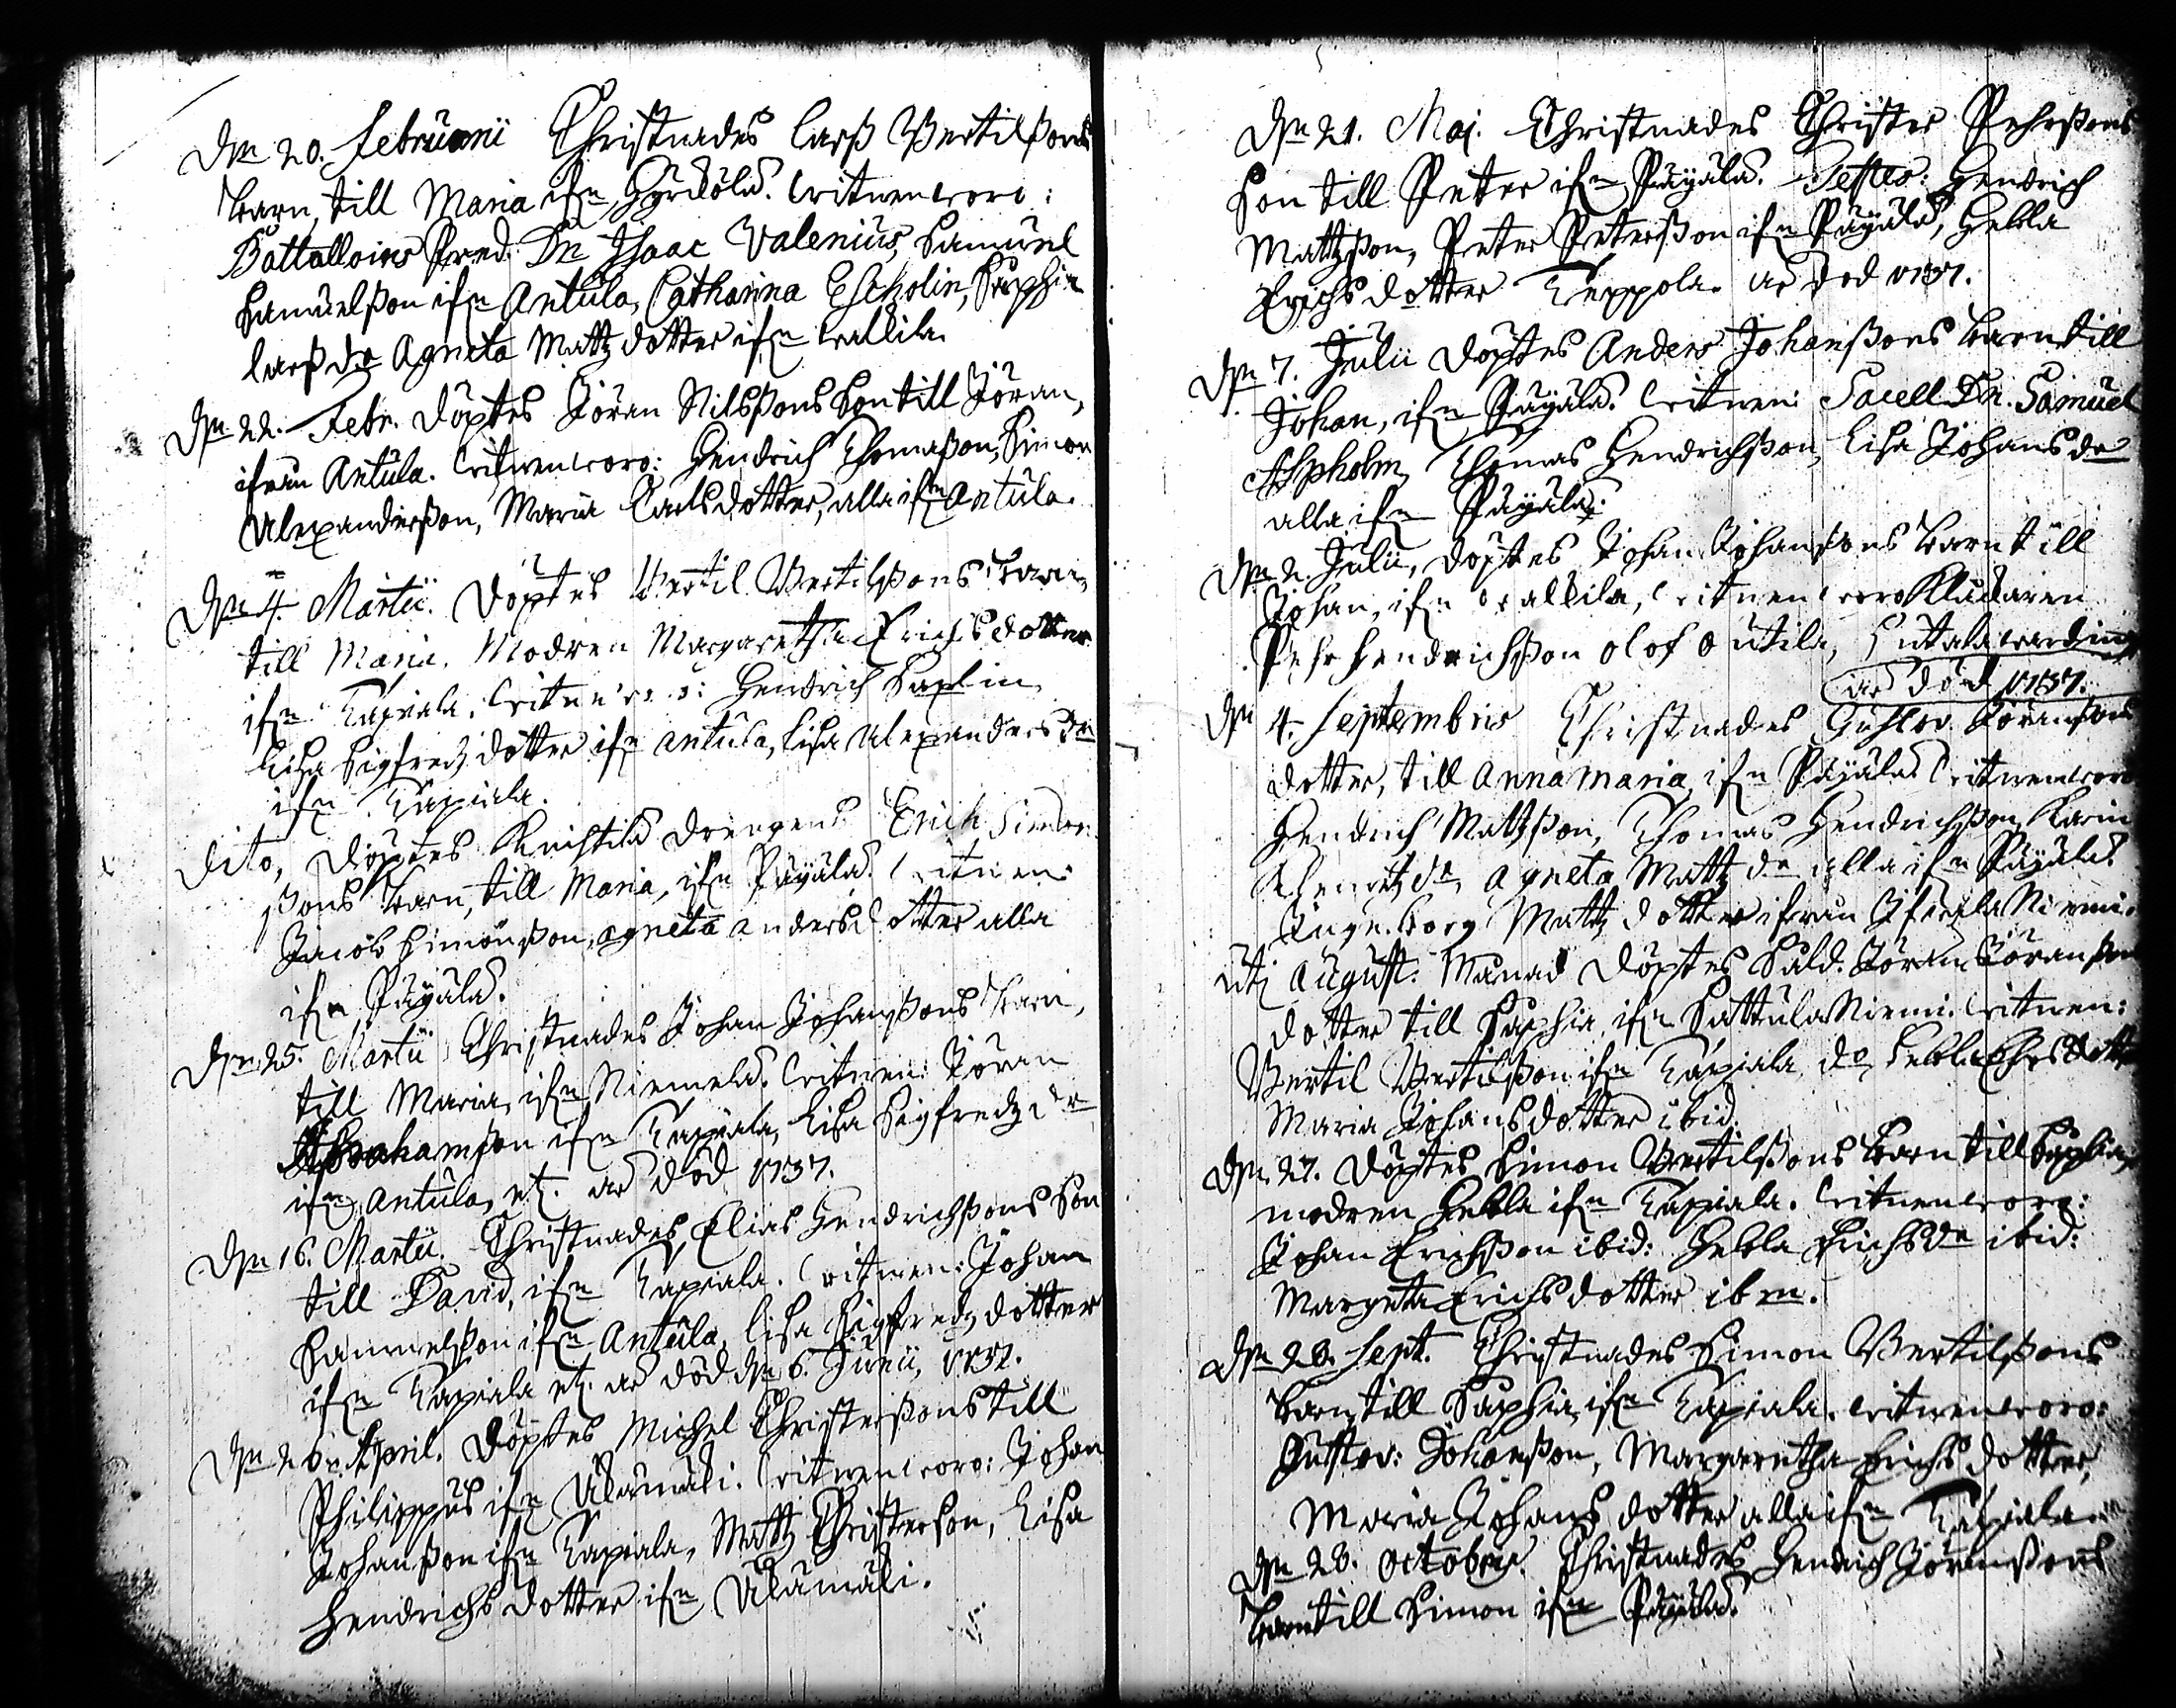 Den 20. Februarii Christnades Larß Bertilßons
barn, till Maria ifrn Hyrkölä. Witnen woro:
Battallions Pred. Dn Isaac Valenius, Samuel
Samuelßon ifrn Antula, Catharina Escholin, Sophia
Larß dr Agneta Mattz dotter ifrn Wallila.
Den 22. Febr. Döptes Jöran Nilsßons Son till Jöran,
ifrån Antula. Witnen woro: Hendrich Thomaßon, Simon
Alexanderßon, Maria Carlsdotter, alla ifrn Antula.
Den 4. Martii. Döptes Bertil Bertilßons barn,
till Maria. Modren Margaretha Erichsdotter
ifrn Kapiala. Witne woro: Hendrich
Lisa Sigfredz dotter ifrn Antula, Lisa Alexanders dr
ifrn Kapiala.
Dito, Döptes Drengens Erich Simon
ßons barn, till Maria, ifrn Päyälä. Witnen:
Jacob Simonßon, Agneta Andersdotter alla
ifrn Päyälä.
Den 25. Martii Christnades Johan Johanßons barn,
till Maria, ifrn Niemelä. Witnen: Jöran
Abrahamßon ifrn Kapiala, Lisa Sigfredz dr
ifrn Antula, etc. är död 1737.
Den 16. Martii. Christnades Elias Hendrichßons Son
till David, ifrn Kapiala. Witnen: Johan
Samuelßon ifrn Antula, Lisa Sigfredz dotter
ifrn Kapiala etc. är död den 6. Junii, 1737.
Den 20. April. Döptes Michel Christerßons till
Philippus ifrn Ulamäki. Witnen woro: Johan
Johanßon ifrn Kapiala, Mattz Christerson, Lisa
Hendrichs dotter ifrn Ulamäki.
Den 21. Maj. Christnades Christer Pehrßons
Son till Peter ifrn Päyälä. Testes: Hendrich
Mattzßon, Peter Peterßon ifrn Päyälä, Hebla
Erichs dotter Keppola. är död 1737.
Den 7. Julii döptes Anders Johanßons barn till
Johan, ifrn Päyälä. Witnen: Sacell. Dn. Samuel
Aspholm, Thomas Hendrichßon, Lisa Johansdr
alla ifrn Päyälä.
Den 2 Julii, döptes Johan Johanßons barn till
Johan, ifrn Wallila, Witnen woro Klåckaren
Pehr Hendrichßon Olof
är död 1737.
Den 4. Septembris Christnades Gustav Jöranßons
dotter, till Anna Maria, ifrn Päyälä. Witnen woro
Hendrich Mattzßon, Thomas Hendrichßon, Karin
dr, Agneta Mattz dr alla ifrn Päyälä
Ingeborg Mattz dotter ifrån Niemi.
uti August. Månad döptes Sald. Jöran Jöranßon
dotter till Sophia, ifrn Sattula Niemi. Witnen:
Bertil Bertilßon ifrn Kapiala, do, Hebla dotter
Maria Johansdotter ibid.
Den 27. Döptes Simon Bertilßons barn till Sophia,
modren Hebla ifrn Kapiala. Witnen woro:
Johan Erichßon ibid: Hebla Erichsdr ibid:
Margeta Erichsdotter ibm.
Den 28. Sept. Christnades Simon Bertilßons
barn, till Sophia, ifrn Kapiala. Witnen woro:
Gustav: Johanßon, Margaretha Erichs dotter,
Maria Johans dotter alla ifrn Kapiala.
Den 28. Octobris. Christnades Hendrich Jöranßons
barn till Simon ifrn Päyälä.